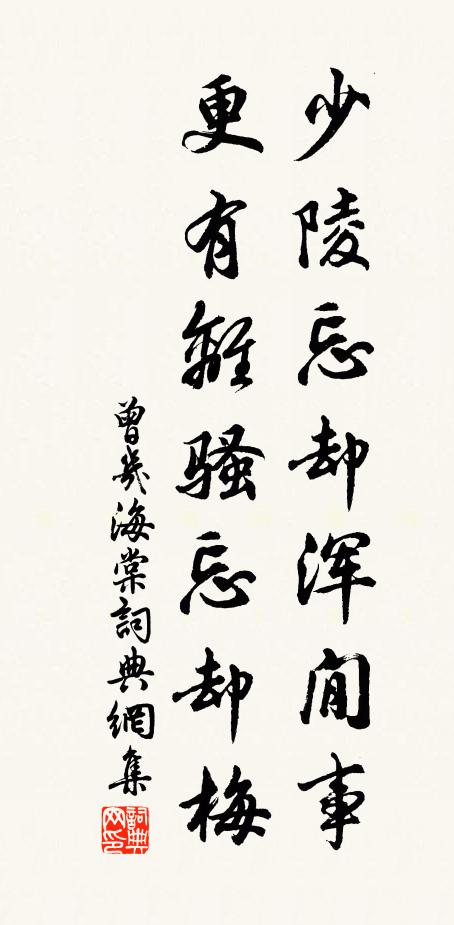 少陵忘却浑閒事
更有離骚忘却梅
曾幾海棠詞典網集
詞典网印